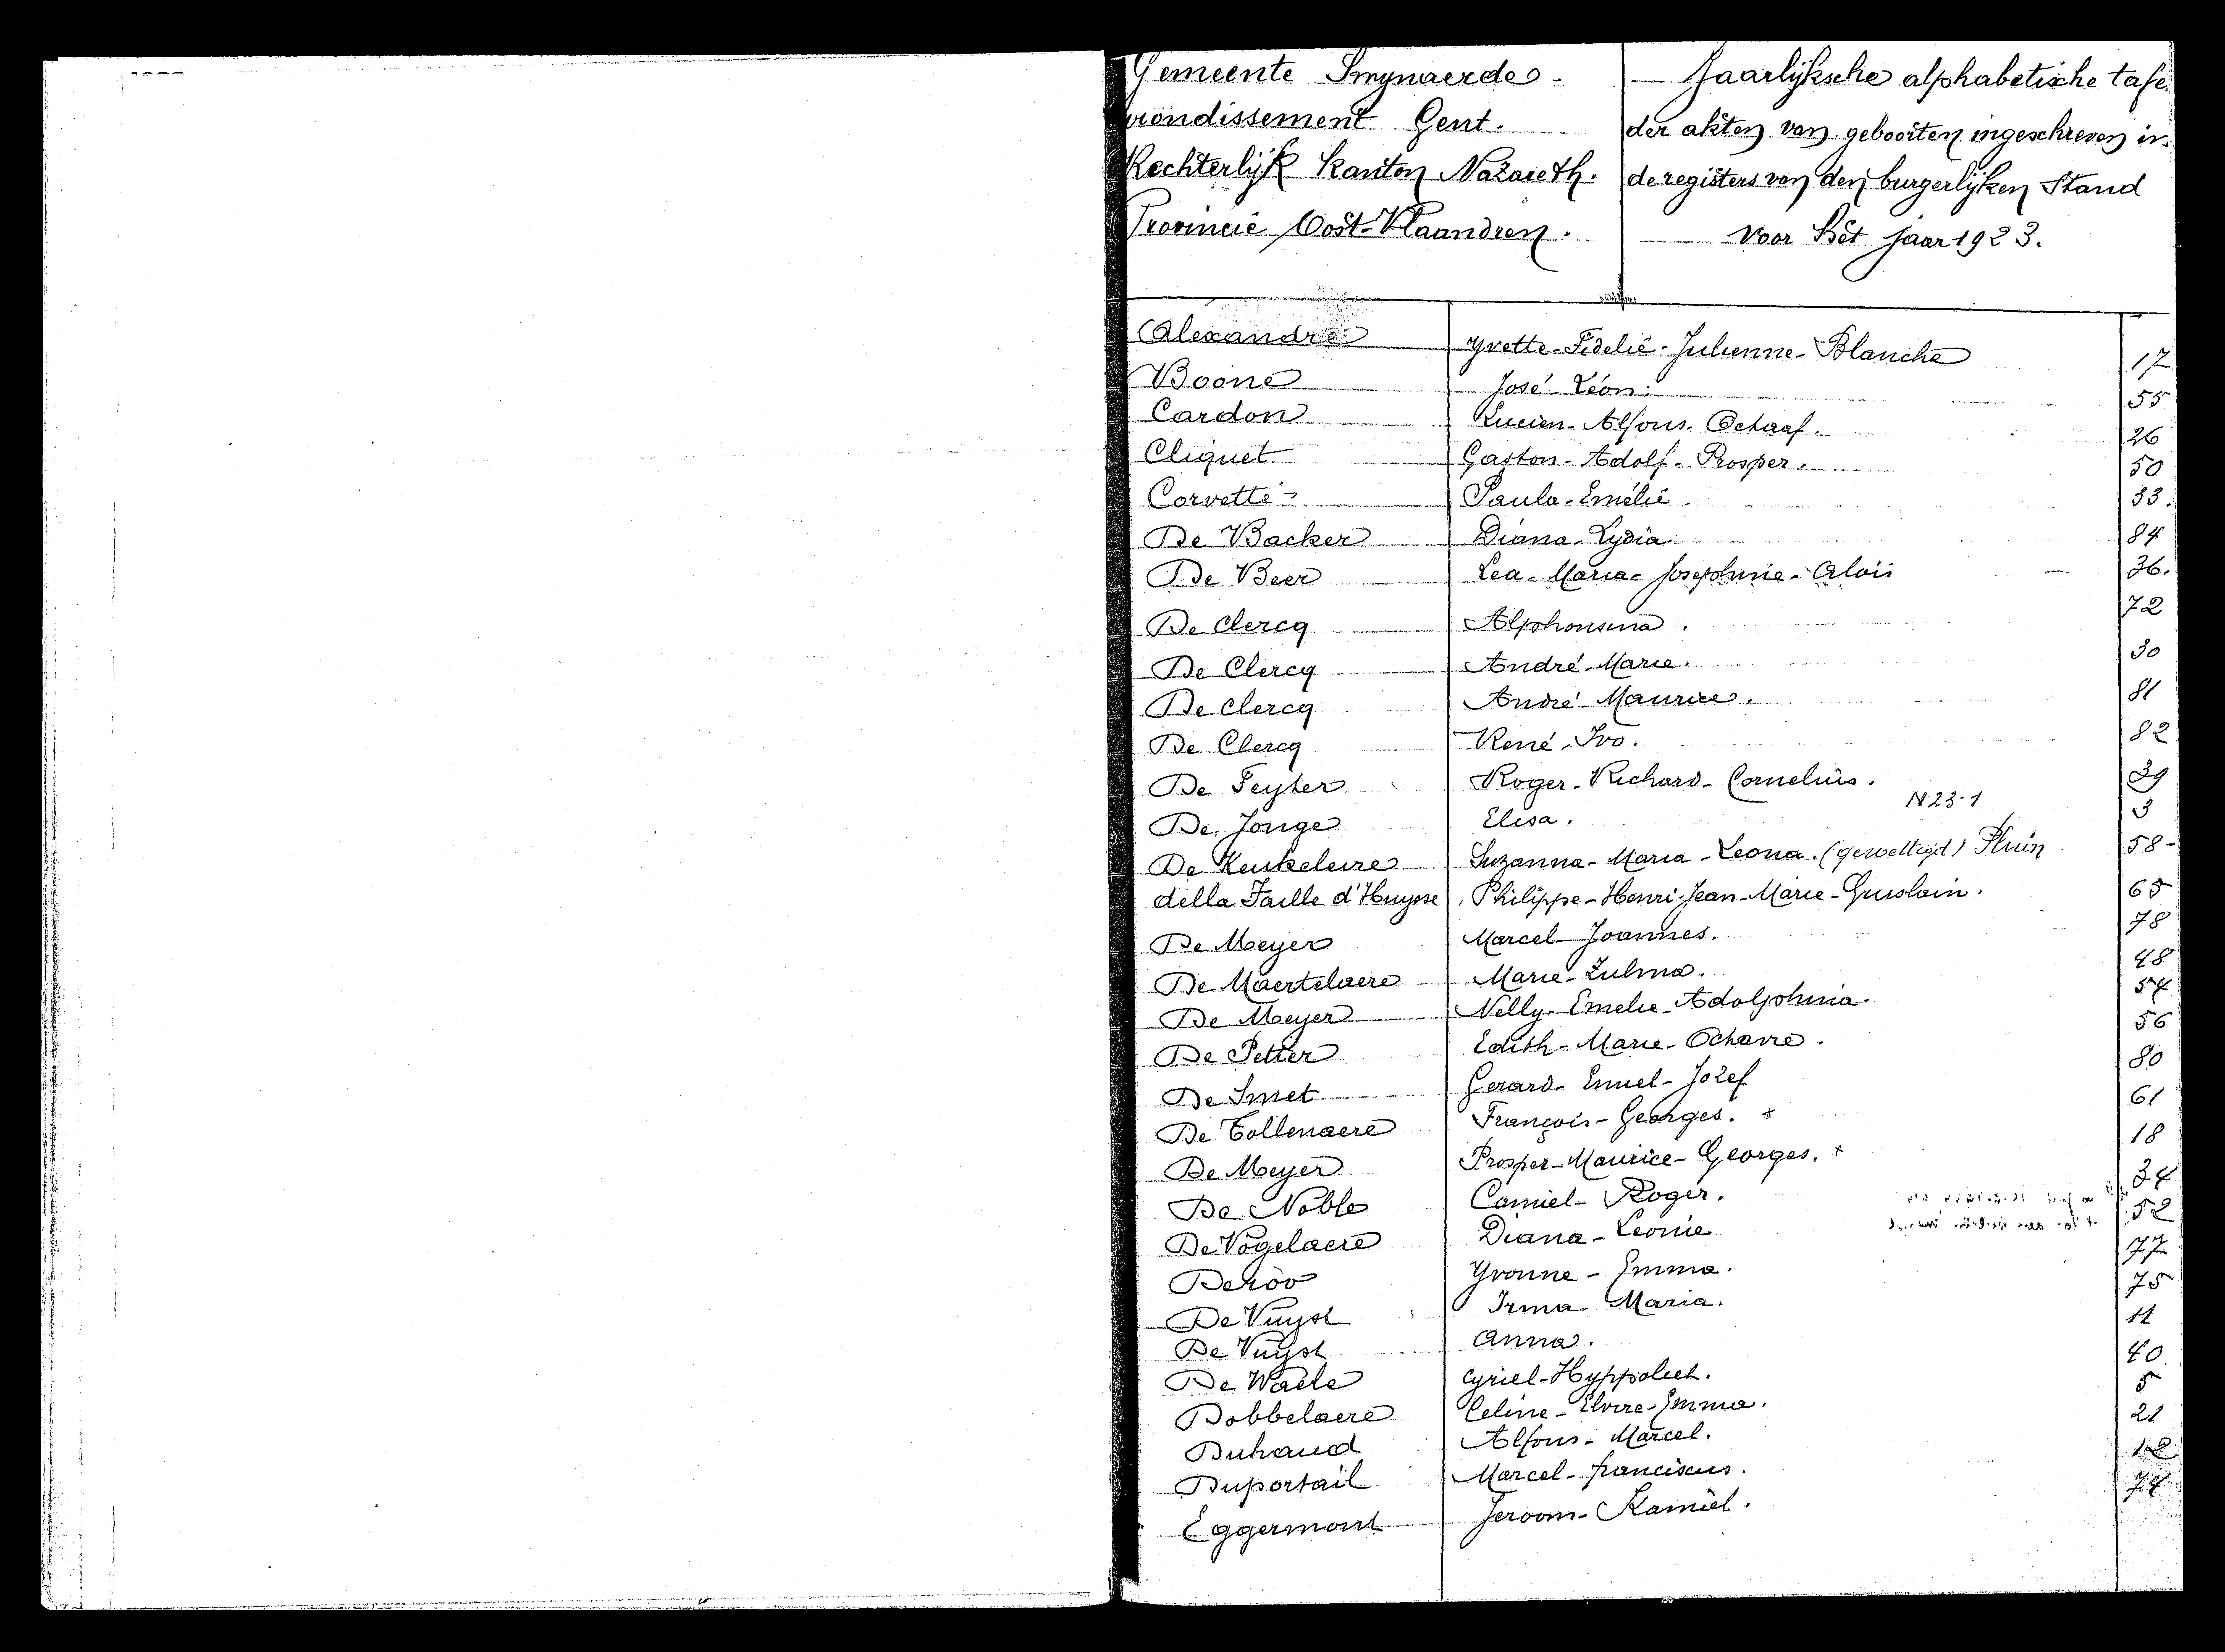 Gemeente Smynaerde.
rrondissement Gent.
Rechterlijk Kanton Nazareth.
Provincie Oost-Vlaandren.
Jaarlijksche alphabetische tafe
der akten van geboorten ingeschreven in
de registers van den burgerlijken Stand
Voor het jaar 1923.
Alexandre Yvette-Fidelie-Julienne-Blanche 17
Boone José-Léon. 55
Cardon Lucien-Alfons-Octaaf. 26
Cliquet Gaston-Adolf-Prosper. 50
Corvette Paula-Emélie. 33.
De Backer Diana-Lydia. 84
De Beer Lea-Maria-Josephine-Aloïs 36.
De Clercq Alphonsina. 72
De Clercq André-Marie. 30
De Clercq André-Maurice. 81
De Clercq René-Ivo. 82
De Feyter Roger-Richard-Cornelius. 39
De Jonge Elisa. N 23-1 3
De Keukeleire Suzanna-Maria-Leona. (gewettigd) Pluin 58-
della Faille d'Huysse Philippe-Henri-Jean-Marie-Guislain. 65
De Meyer Marcel-Joannes. 78
De Maertelaere Marie-Zulma. 48
De Meyer Nelly-Emelie-Adolphina. 54
De Petter Edith-Marie-Octavie. 56
De Smet Gerard-Emiel-Jozef 80
De Tollenaere François-Georges. x 61
De Meyer Prosper-Maurice-Georges. x 18
De Noble Camiel-Roger. 34
De Vogelaere Diana-Leonie 52
Deroo Yvonne-Emma. 77
De Vuyst Irma-Maria. 75
De Vuyst Anna. 11
De Waele Cyriel-Hyppoliet. 40
Dobbelaere Celine-Elvire-Emma. 5
Duhaud Alfons-Marcel. 21
Duportail Marcel-franciscus. 12
Eggermont Jeroom-Kamiel. 74